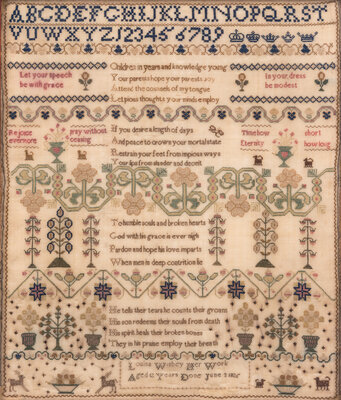 ABCDEFGHIJKLMNOPQRST
VUWXYZ123456789
Children in years and knowledge young
Your parents hope your parents joy
Attend the counsels of my tongue
Let pious thoughts your minds employ
Let your speech
be with grace
In your dress
be modest
Rejoice
evermore
pray without
ceasing
If you desire a length of days
And peace to crown your mortal state
Restrain your feet from impious ways
Your lips from slander and deceit
Time how
short
Eternity
how long
To humble souls and broken hearts
God with his grace is ever nigh
Pardon and hope his love imparts
When men in deep contrition lie
He tells their tears he counts their groans
His son redeems their souls from death
His spirit heals their broken bones
They in his praise employ their breath
Louisa Her Work
Aged Years Done June